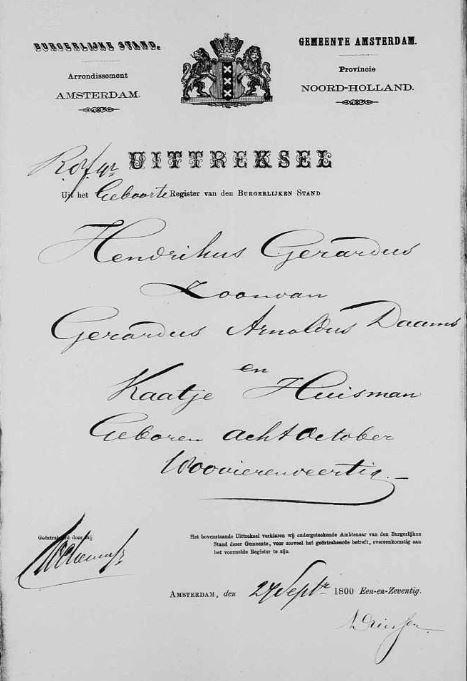 BURGERLIJKE STAND.
GEMEENTE AMSTERDAM.
Arrondissement
AMSTERDAM.
Provincie
NOORD-HOLLAND.
UITTREKSEL
Uit het Geboorte Register van den BURGERLIJKEN STAND
Hendrikus Gerardus
Zoon van
Gerardus Arnoldus Daams
en
Kaatje Huisman
Geboren acht October
1800 vierenveertig.
Het bovenstaande Uittreksel verklaren wij ondergeteekende Ambtenaar van den Burgerlijken
Stand dezer Gemeente, voor zooveel het geëxtraheerde betreft, overeenkomstig aan
het voormelde Register te zijn.
AMSTERDAM, den 27 Septr 1800 Een-en-Zeventig.